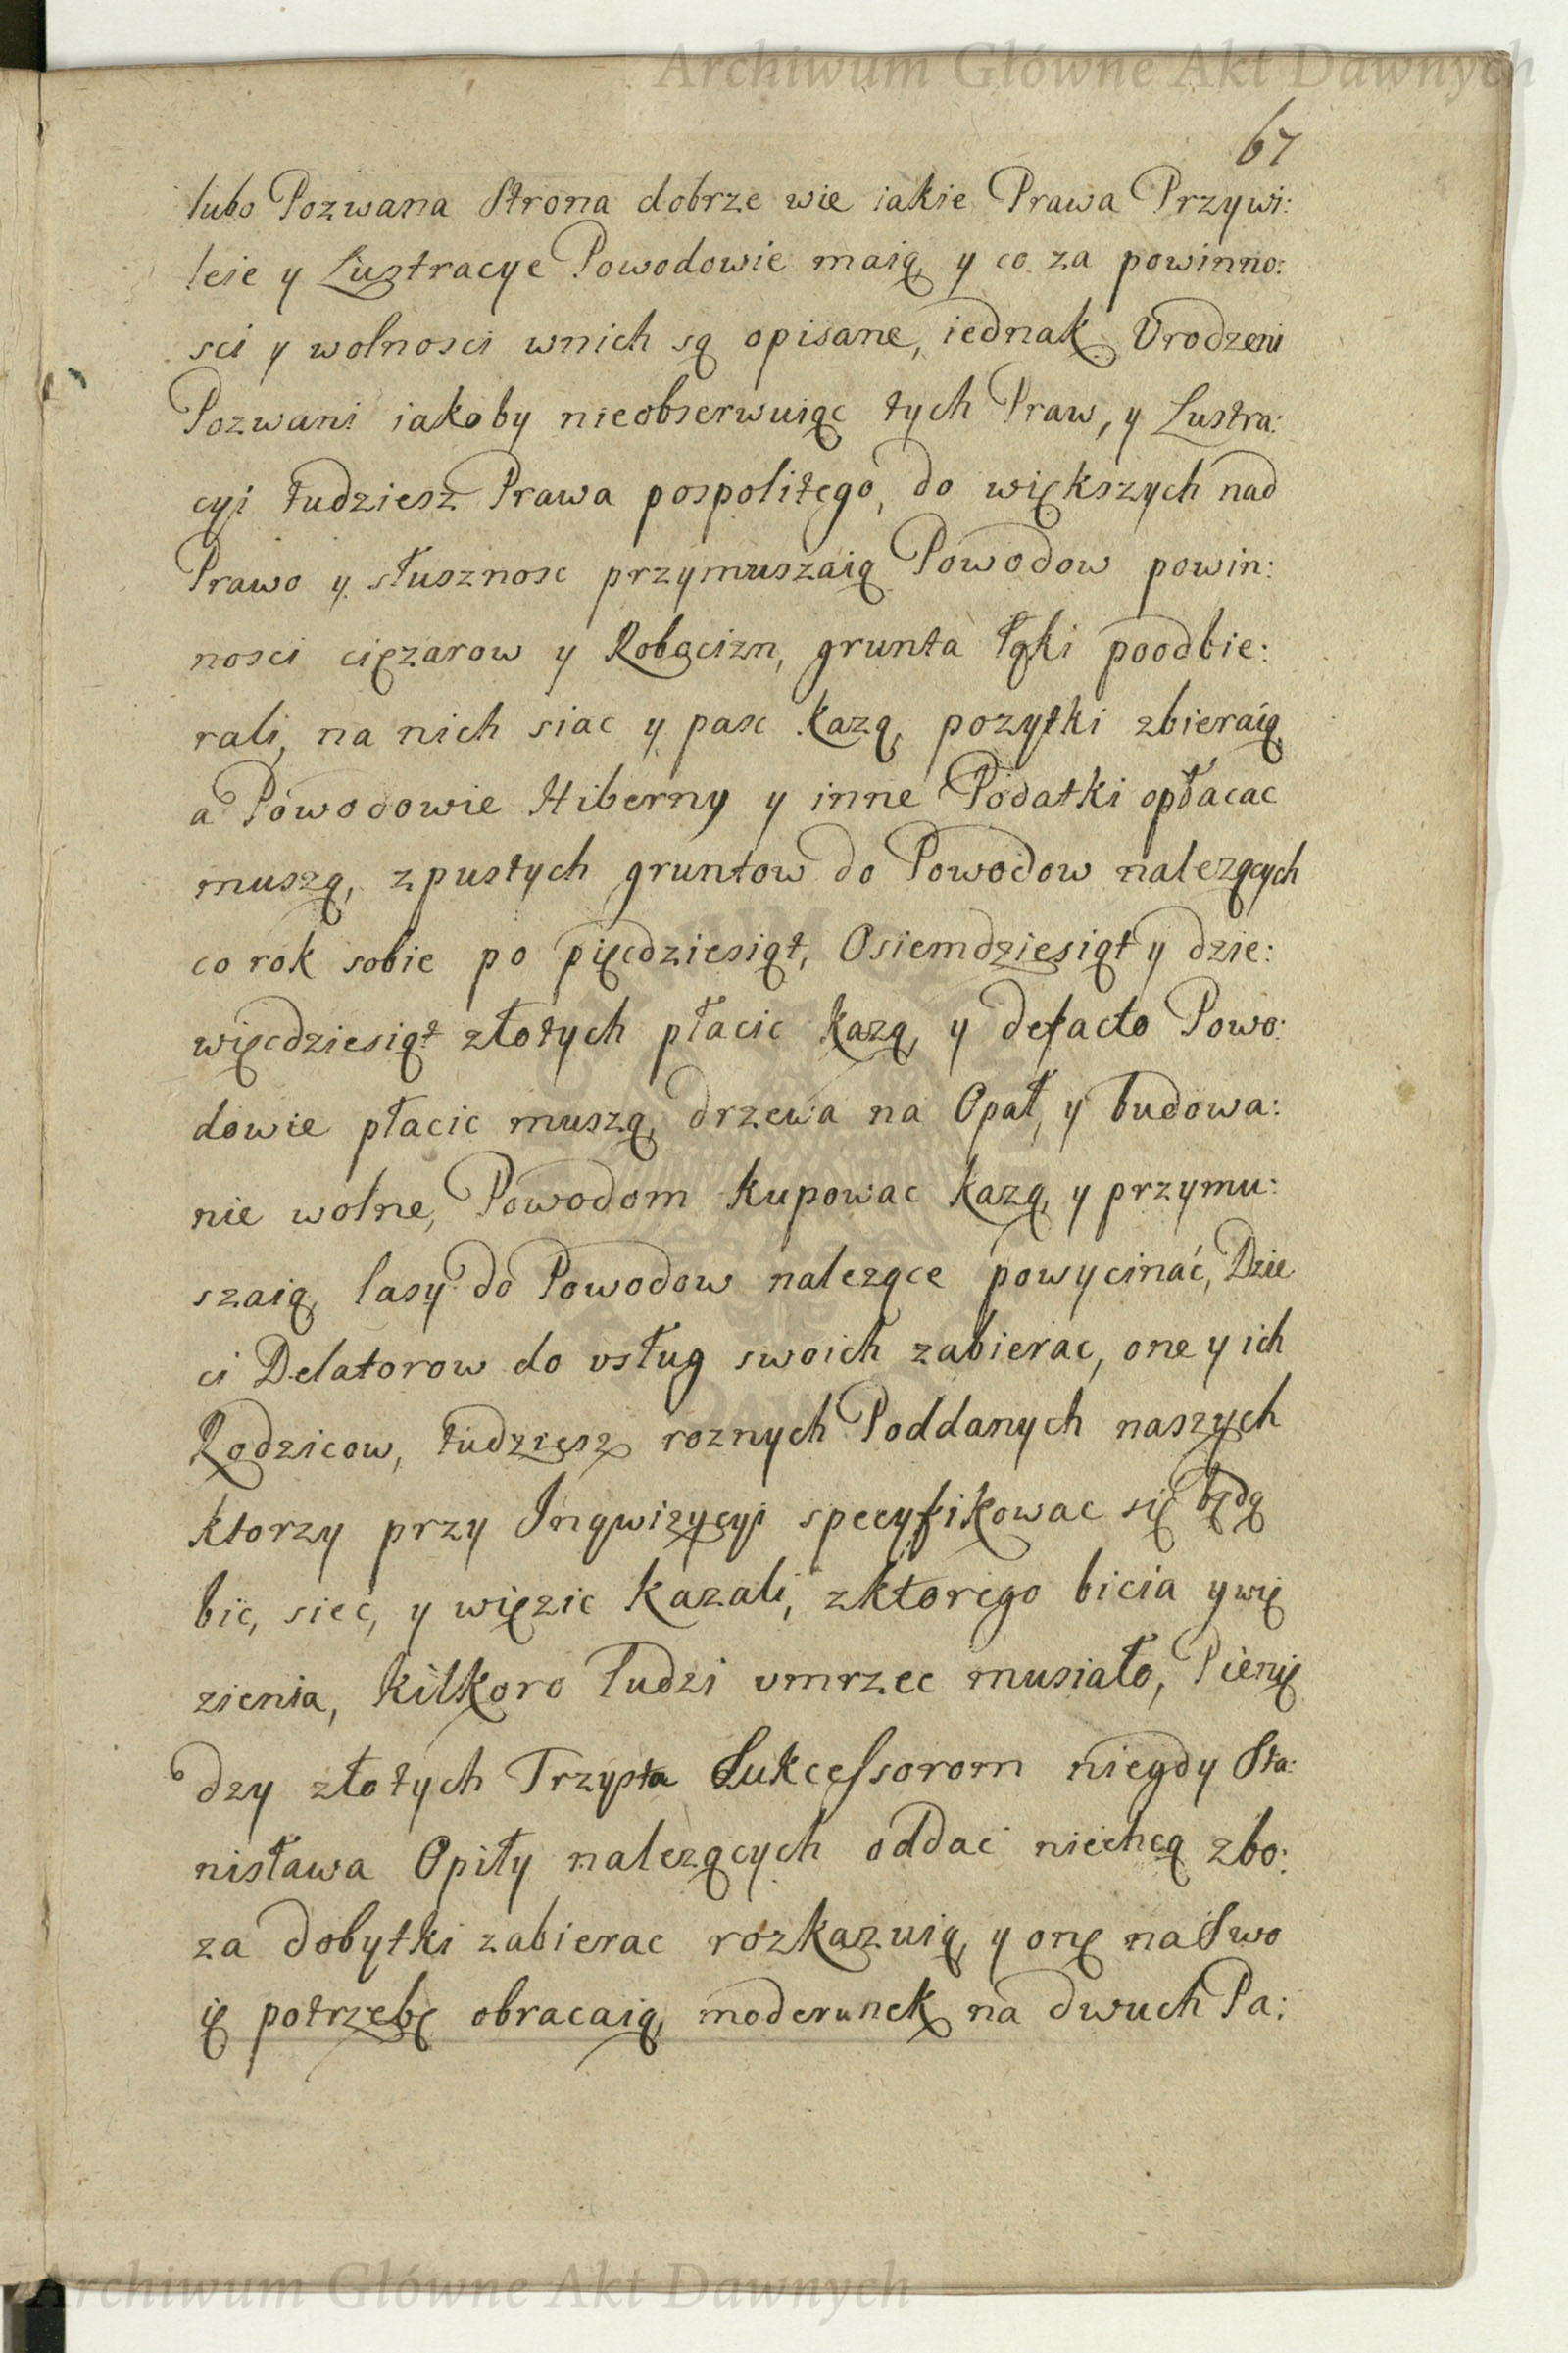 Archiwum Główne Akt Dawnych
67
lubo Pozwana Strona dobrze wie iakie Prawa Przywi:
leie y Lustracye Powodowie maią y co za powinno:
sci y wolnosci wnich są opisane, iednak Urodzeni
Pozwani iakoby nieobserwuiąc tych Praw, y Lustra:
cyi tudziesz Prawa pospolitego, do większych nad
Prawo y słusznosc przymuszaią Powodow powin:
nosci cięzarow y Robocizn, grunta łąki poodbie:
rali, na nich siac y pasc kazą, pozytki zbieraią
a Powodowie Hiberny y inne Podatki opłacac
muszą, zpustych gruntow do Powodow nalezących
co rok sobie po pięcdziesiąt, Osiemdziesiąt y dzie:
więcdziesiąt złotych płacic kazą, y defacto Powo:
dowie płacic muszą, drzewa na Opał, y budowa:
nie wolne, Powodom kupowac kazą, y przymu:
szaią, lasy do Powodow nalezące powycinać, Dzie
ci Delatorow do usług swoich zabierac, one y ich
Rodzicow, tudziesz roznych Poddanych naszych
ktorzy przy Inqwizycyi specyfikowac się będą
bic, siec, y więzic kazali, zktorego bicia y wię
zienia, kilkoro ludzi umrzec musiało, Pienię
dzy złotych Trzysta Sukcessorom niegdy Sta:
nisława Opiły nalezących oddac niechcą zbo:
za dobytki zabierac rozkazuią, y onę na Swo
ię potrzebę obracaią, moderunek na dwuch Pa:
Archiwum Główne Akt Dawnych